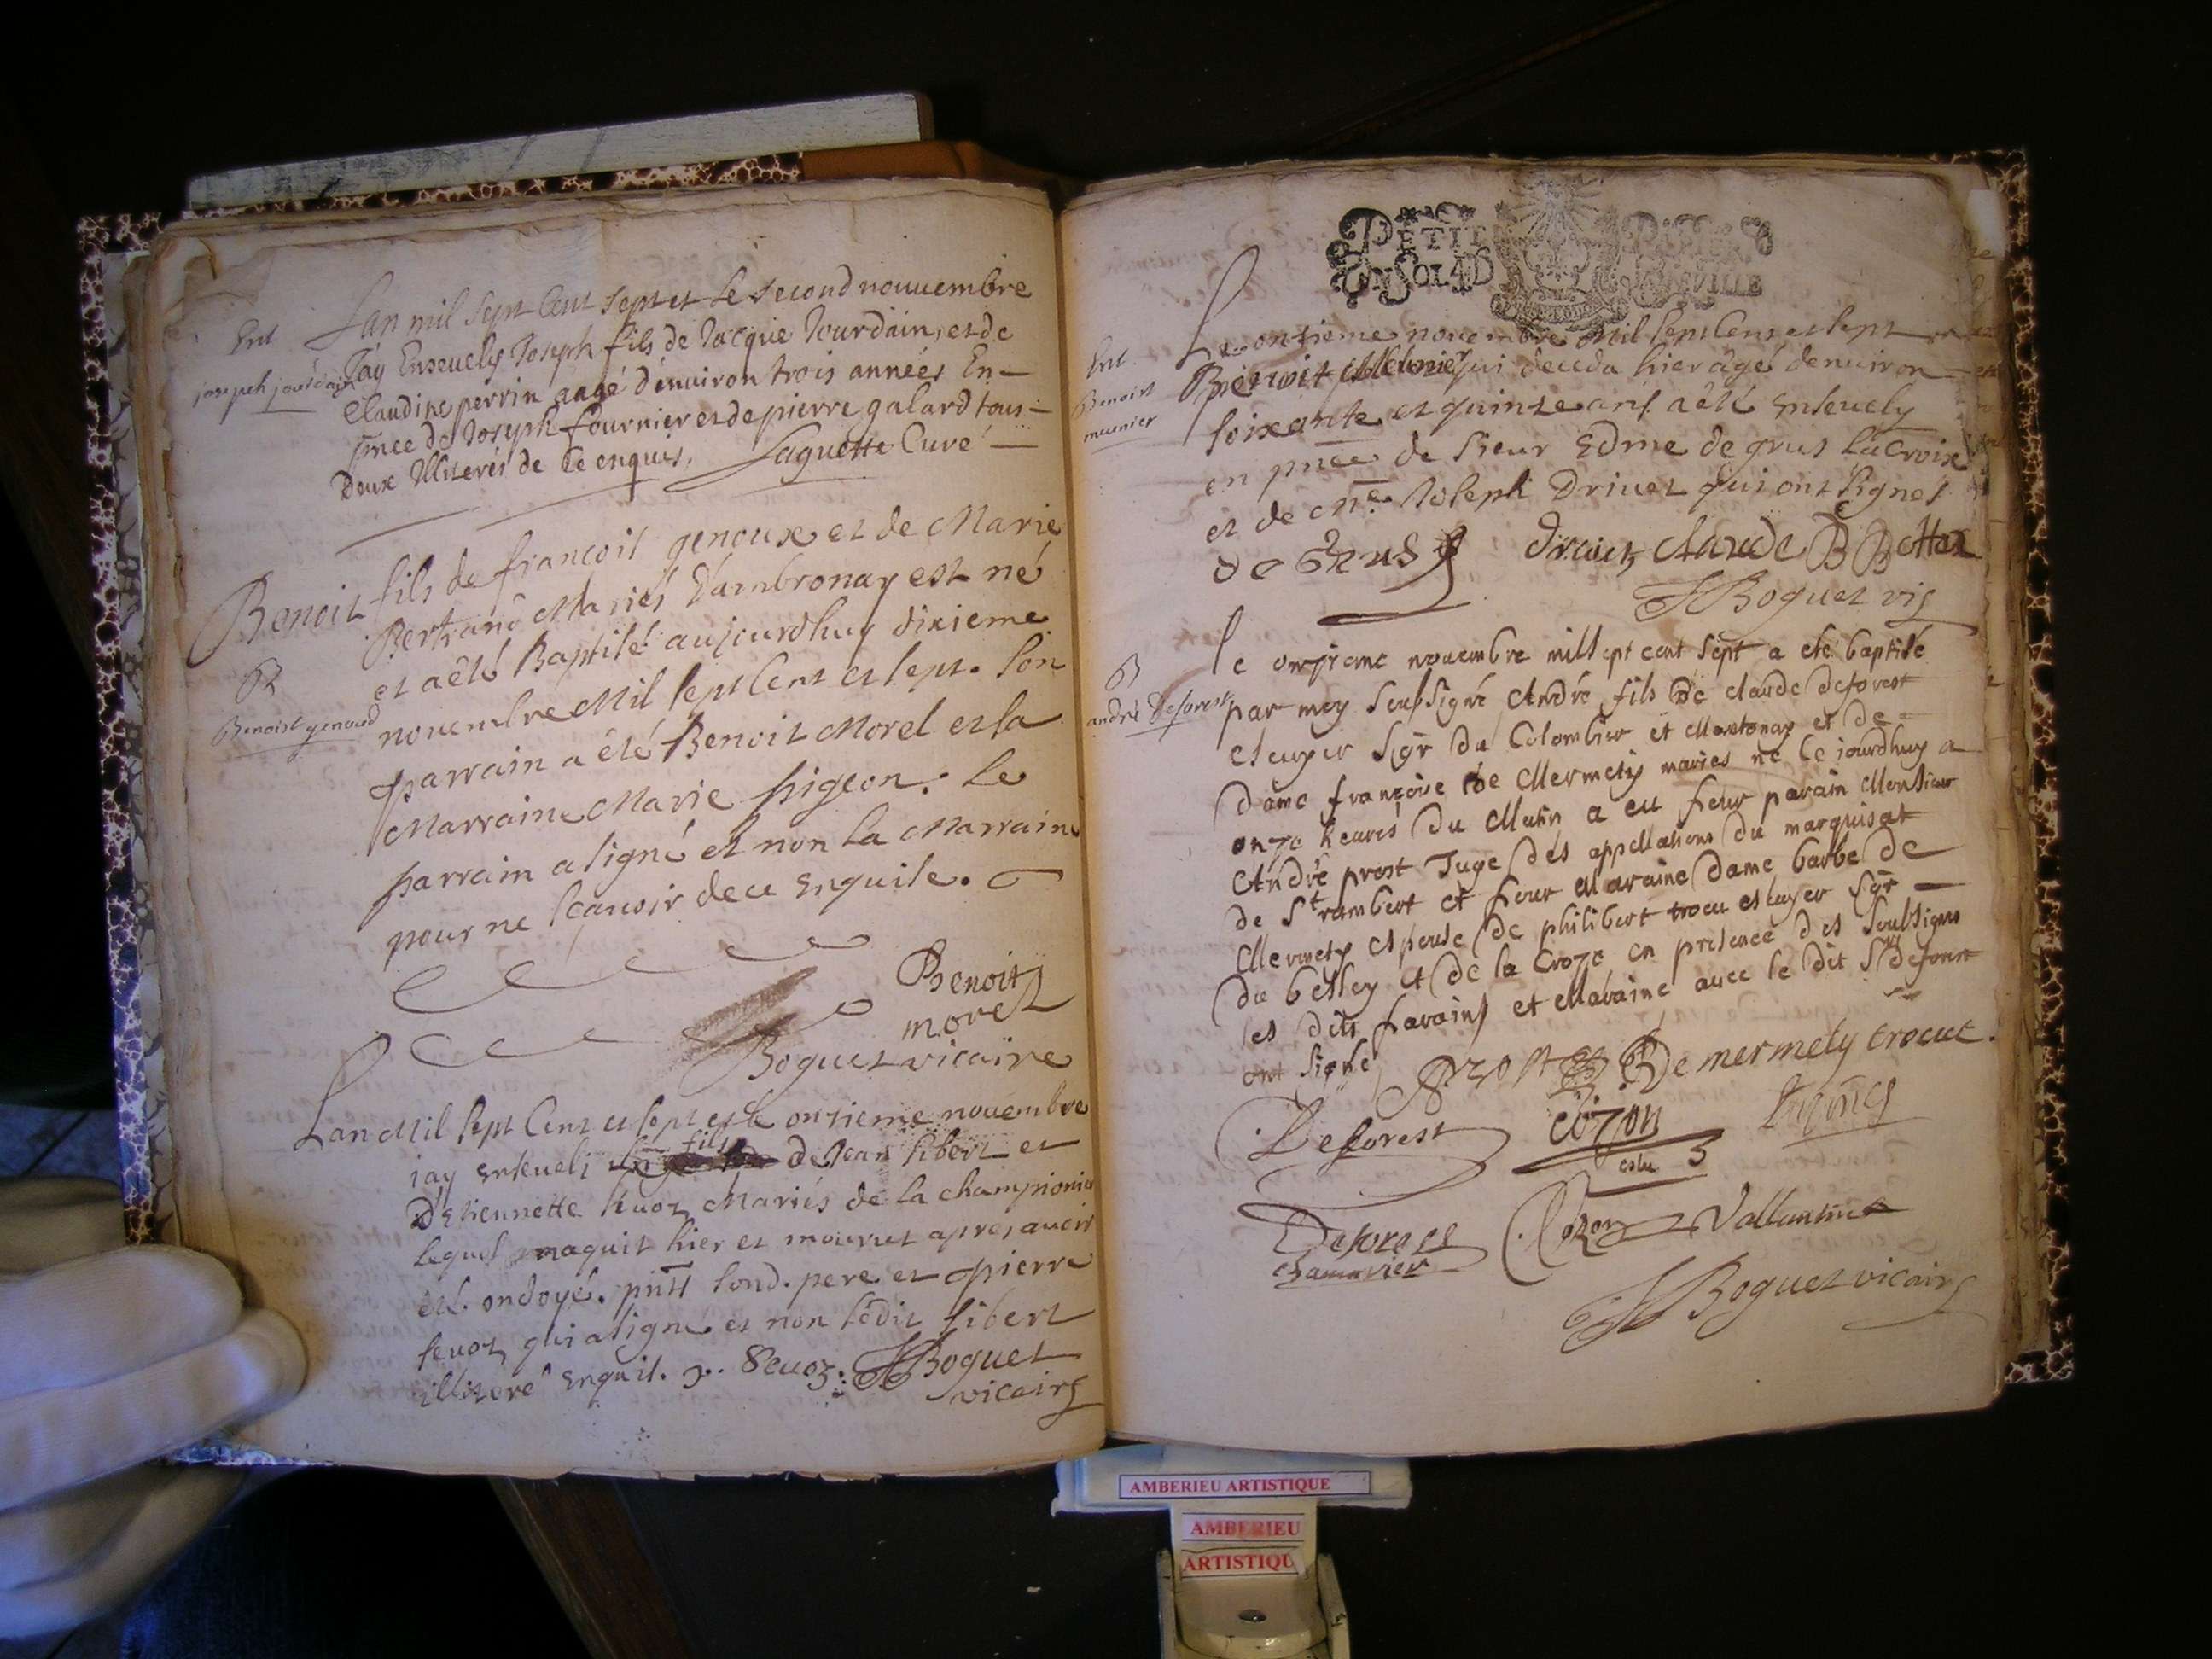 Ent
joseph jourdain
Lan mil sept Cent sept et le second nouuembre
Jáy Enseuely Joseph fils de Jacque Jourdain, et de
Claudine perrin aagé d'enuiron trois années En-
pnce de Joseph fournier et de pierre galard tous-
deux Illiterés de ce enquis, Laguette Curé
Benoit fils de francoit genoux et de Marie
Bertrand Mariés d'ambronay est né
et a été Baptisé aujourdhuy dixieme
B
Benoist genoud
nouembre Mil sept Cent et sept. son
parrain a été Benoit Morel et la
Marraine Marie pigeon. Le
parrain a signé et non la Marraine
pour ne scauoir de ce enquise.
Benoit
morel
Boguet vicaire
Lan Mil sept Cent et sept et le onzieme nouembre
jay enseueli fils de Jean sibert et
d'etiennette seuoz Mariés de la championiere
lequel naquit hier et mourut apres auoir
été ondoyé. pnts sond. pere et pierre
seuoz qui a signé et non ledit sibert
illiteré enquis. Seuoz. Boguet
vicaire
PETIT PAPIER
UN SOL 4 D
Ent
Benoist
meunier
Le onzieme nouembre Mil sept Cent et sept
Benoit Meunier qui deceda hier âgé denuiron
soixante et quinze ans a été enseuely
en pnce de sieur Edme de grus Lacroix
et de Me Joseph Driuet qui ont signes
de Grus Driuet claude B Bottex
Boguet vic
B
andré deforest
le onzieme nouembre mil sept cent sept a eté baptisé
par moy soubsigné André fils de claude deforest
escuyer sgr du Colombier et Montonay et de
dame francoise de Mermety mariés né ce jourdhuy a
onze heures du Matin a eu pour parain Monsieur
André prost Juge des appellations du marquisat
de St rambert et pour Maraine dame barbe de
Mermety espouse de philibert trocu escuyer sgr
du bessey et de la Croze en presence des soubsignes
les dits parains et Maraine auec le dit Sr deforest
ont signe Prost De mermety trocut.
Deforest Cozon
eslu
Deforest
chamarier Cozon Vallantin
Boguet vicaire
AMBERIEU ARTISTIQUE
AMBERIEU
ARTISTIQU